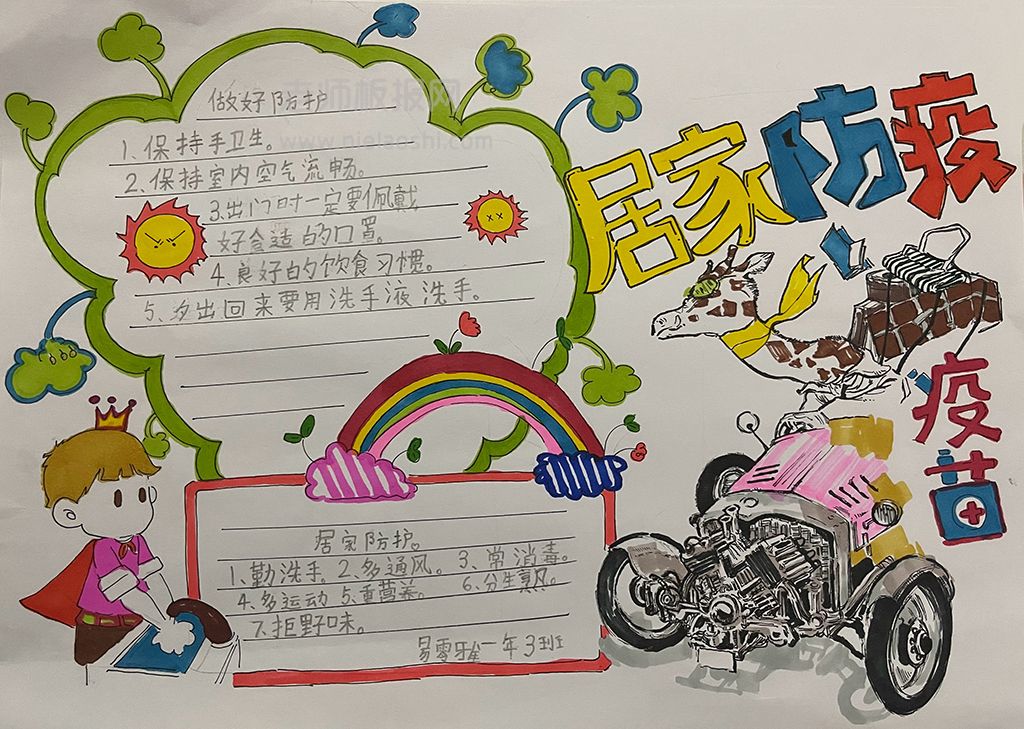 居家防疫
疫苗
做好防护
1、保持手卫生。
2、保持室内空气流畅。
3、出门时一定要佩戴
好合适的口罩。
4、良好的饮食习惯。
5、外出回来要用洗手液洗手。
居家防护。
1、勤洗手。2、多通风。3、常消毒。
4、多运动 5、重营养。6、分生熟。
7、拒野味。
一年3班
老师板报网